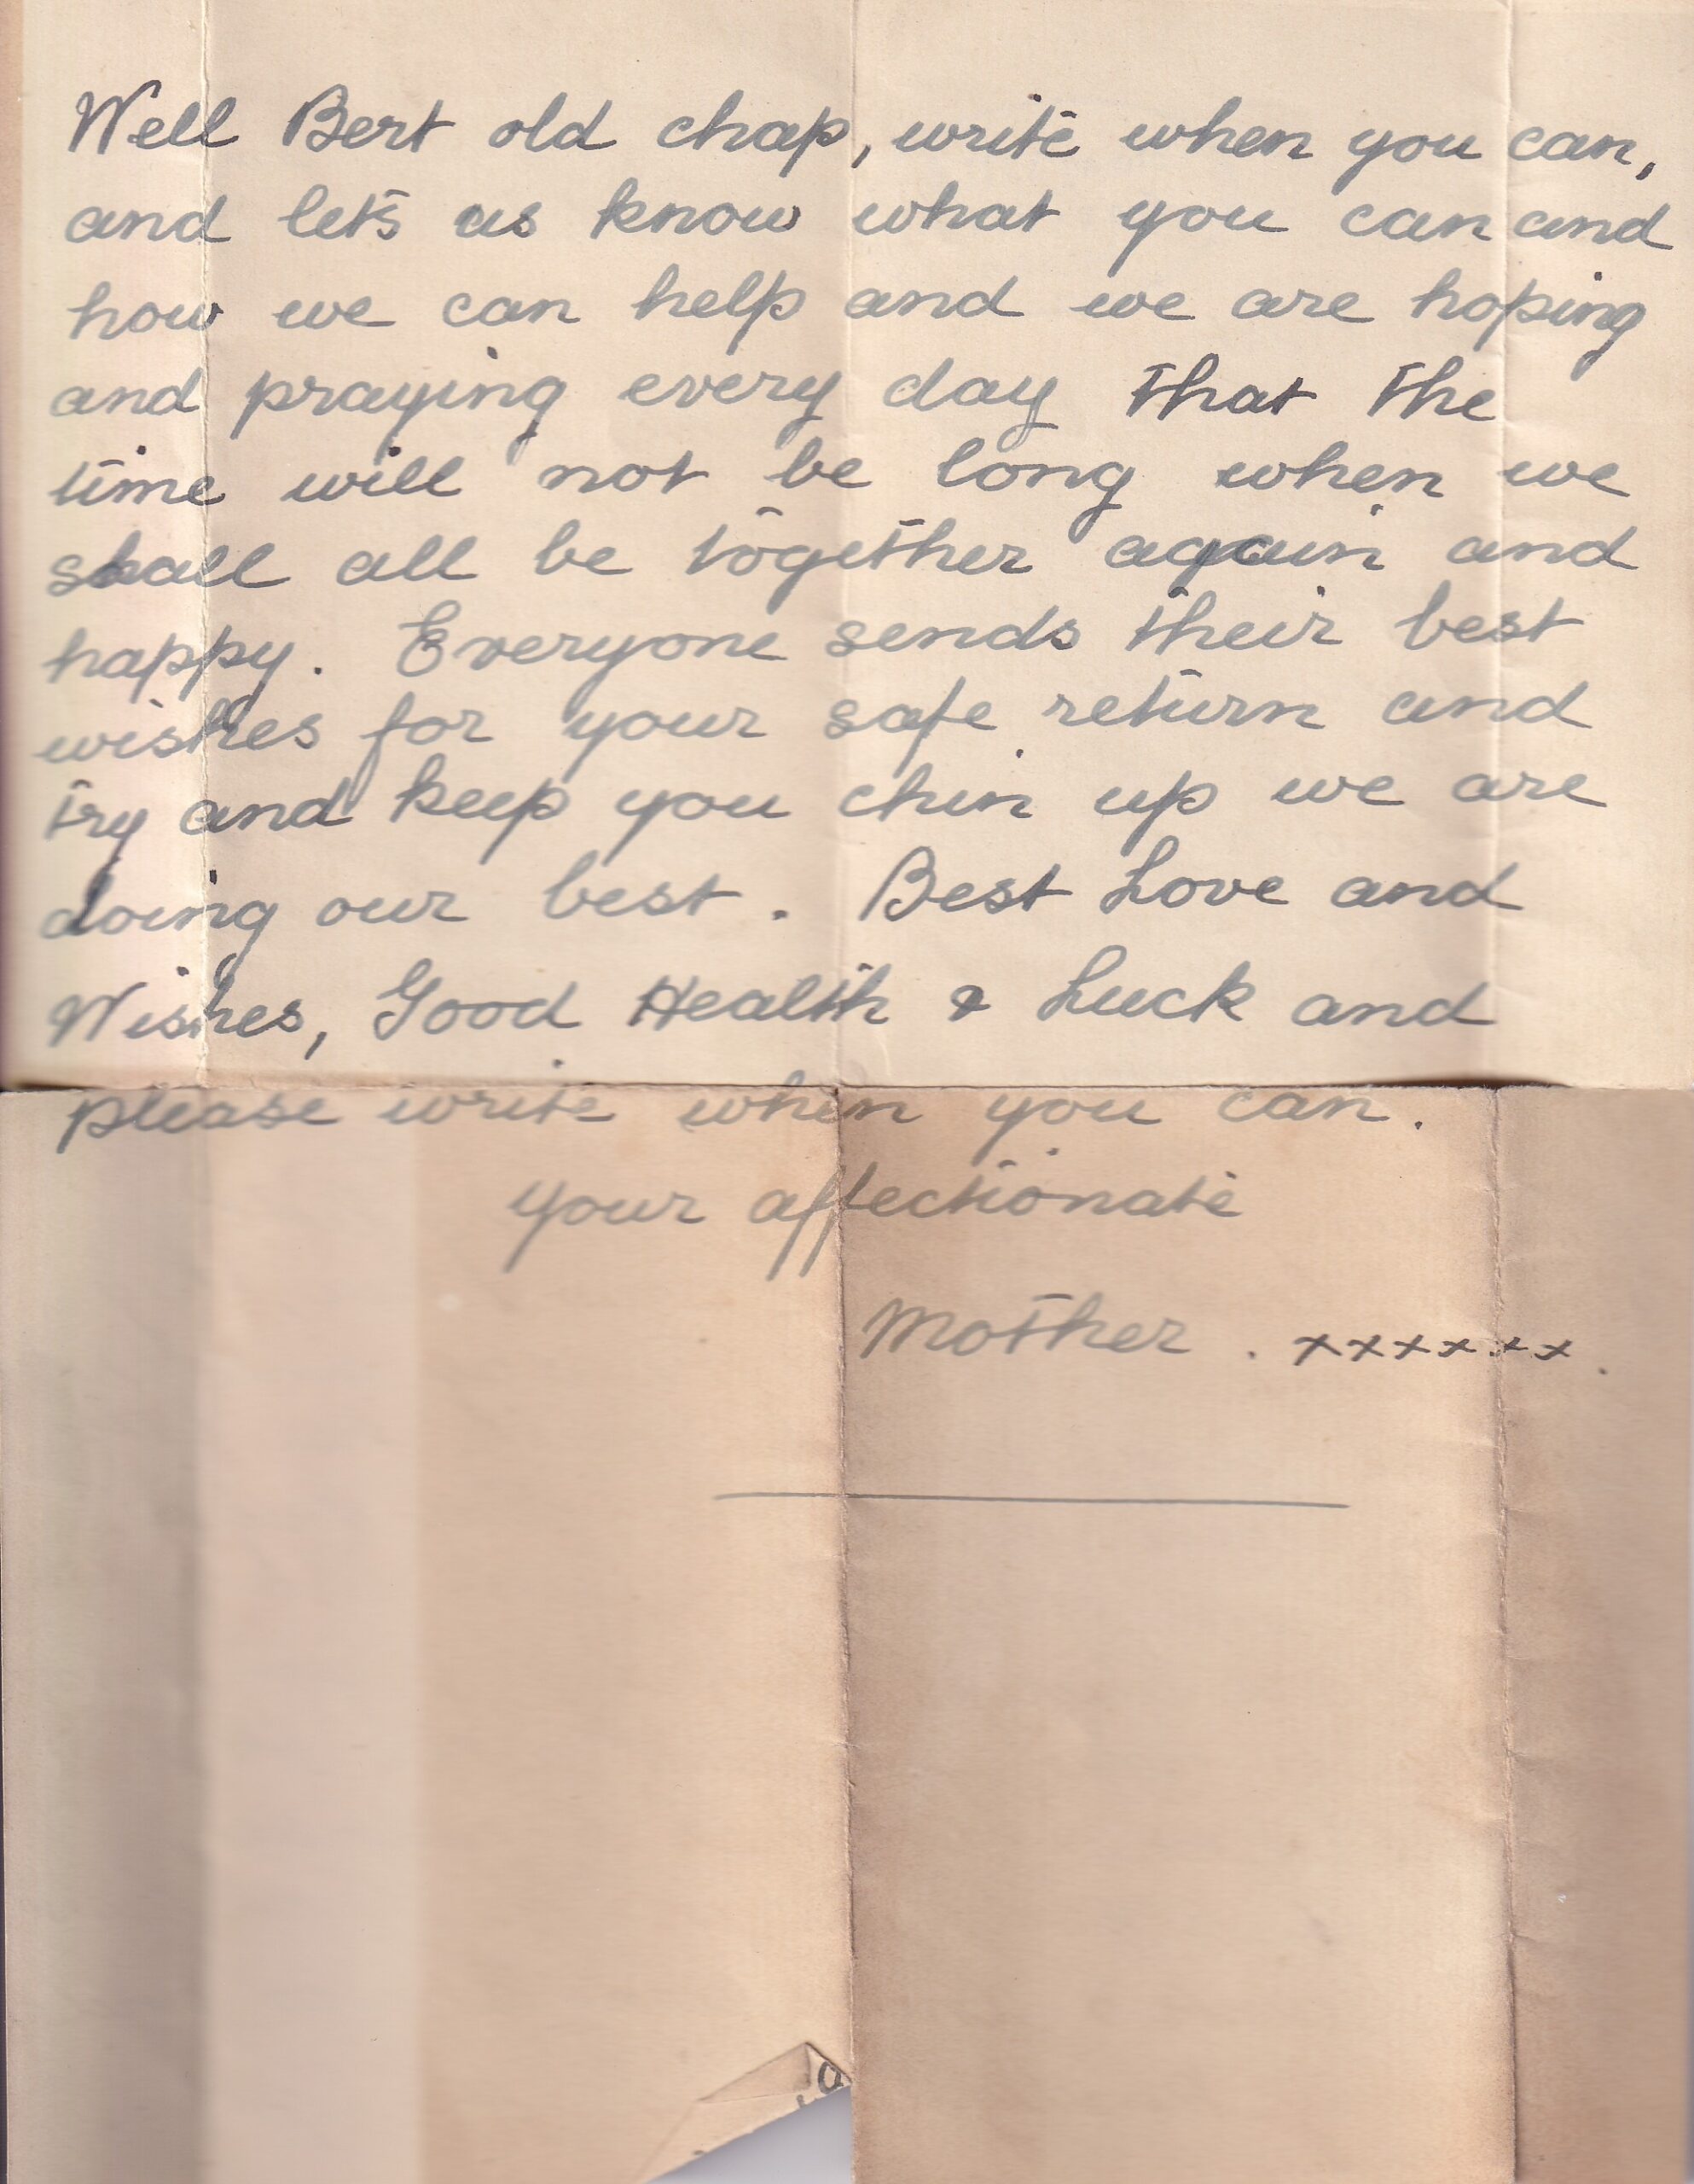 Well Bert old chap, write when you can,
and let's us know what you can and
how we can help and we are hoping
and praying every day that the
time will not be long when we
shall all be together again and
happy. Everyone sends their best
wishes for your safe return and
try and keep you chin up we are
doing our best. Best Love and
Wishes, Good Health & Luck and
please write when you can.
your affectionate
Mother. xxxxxx.
a